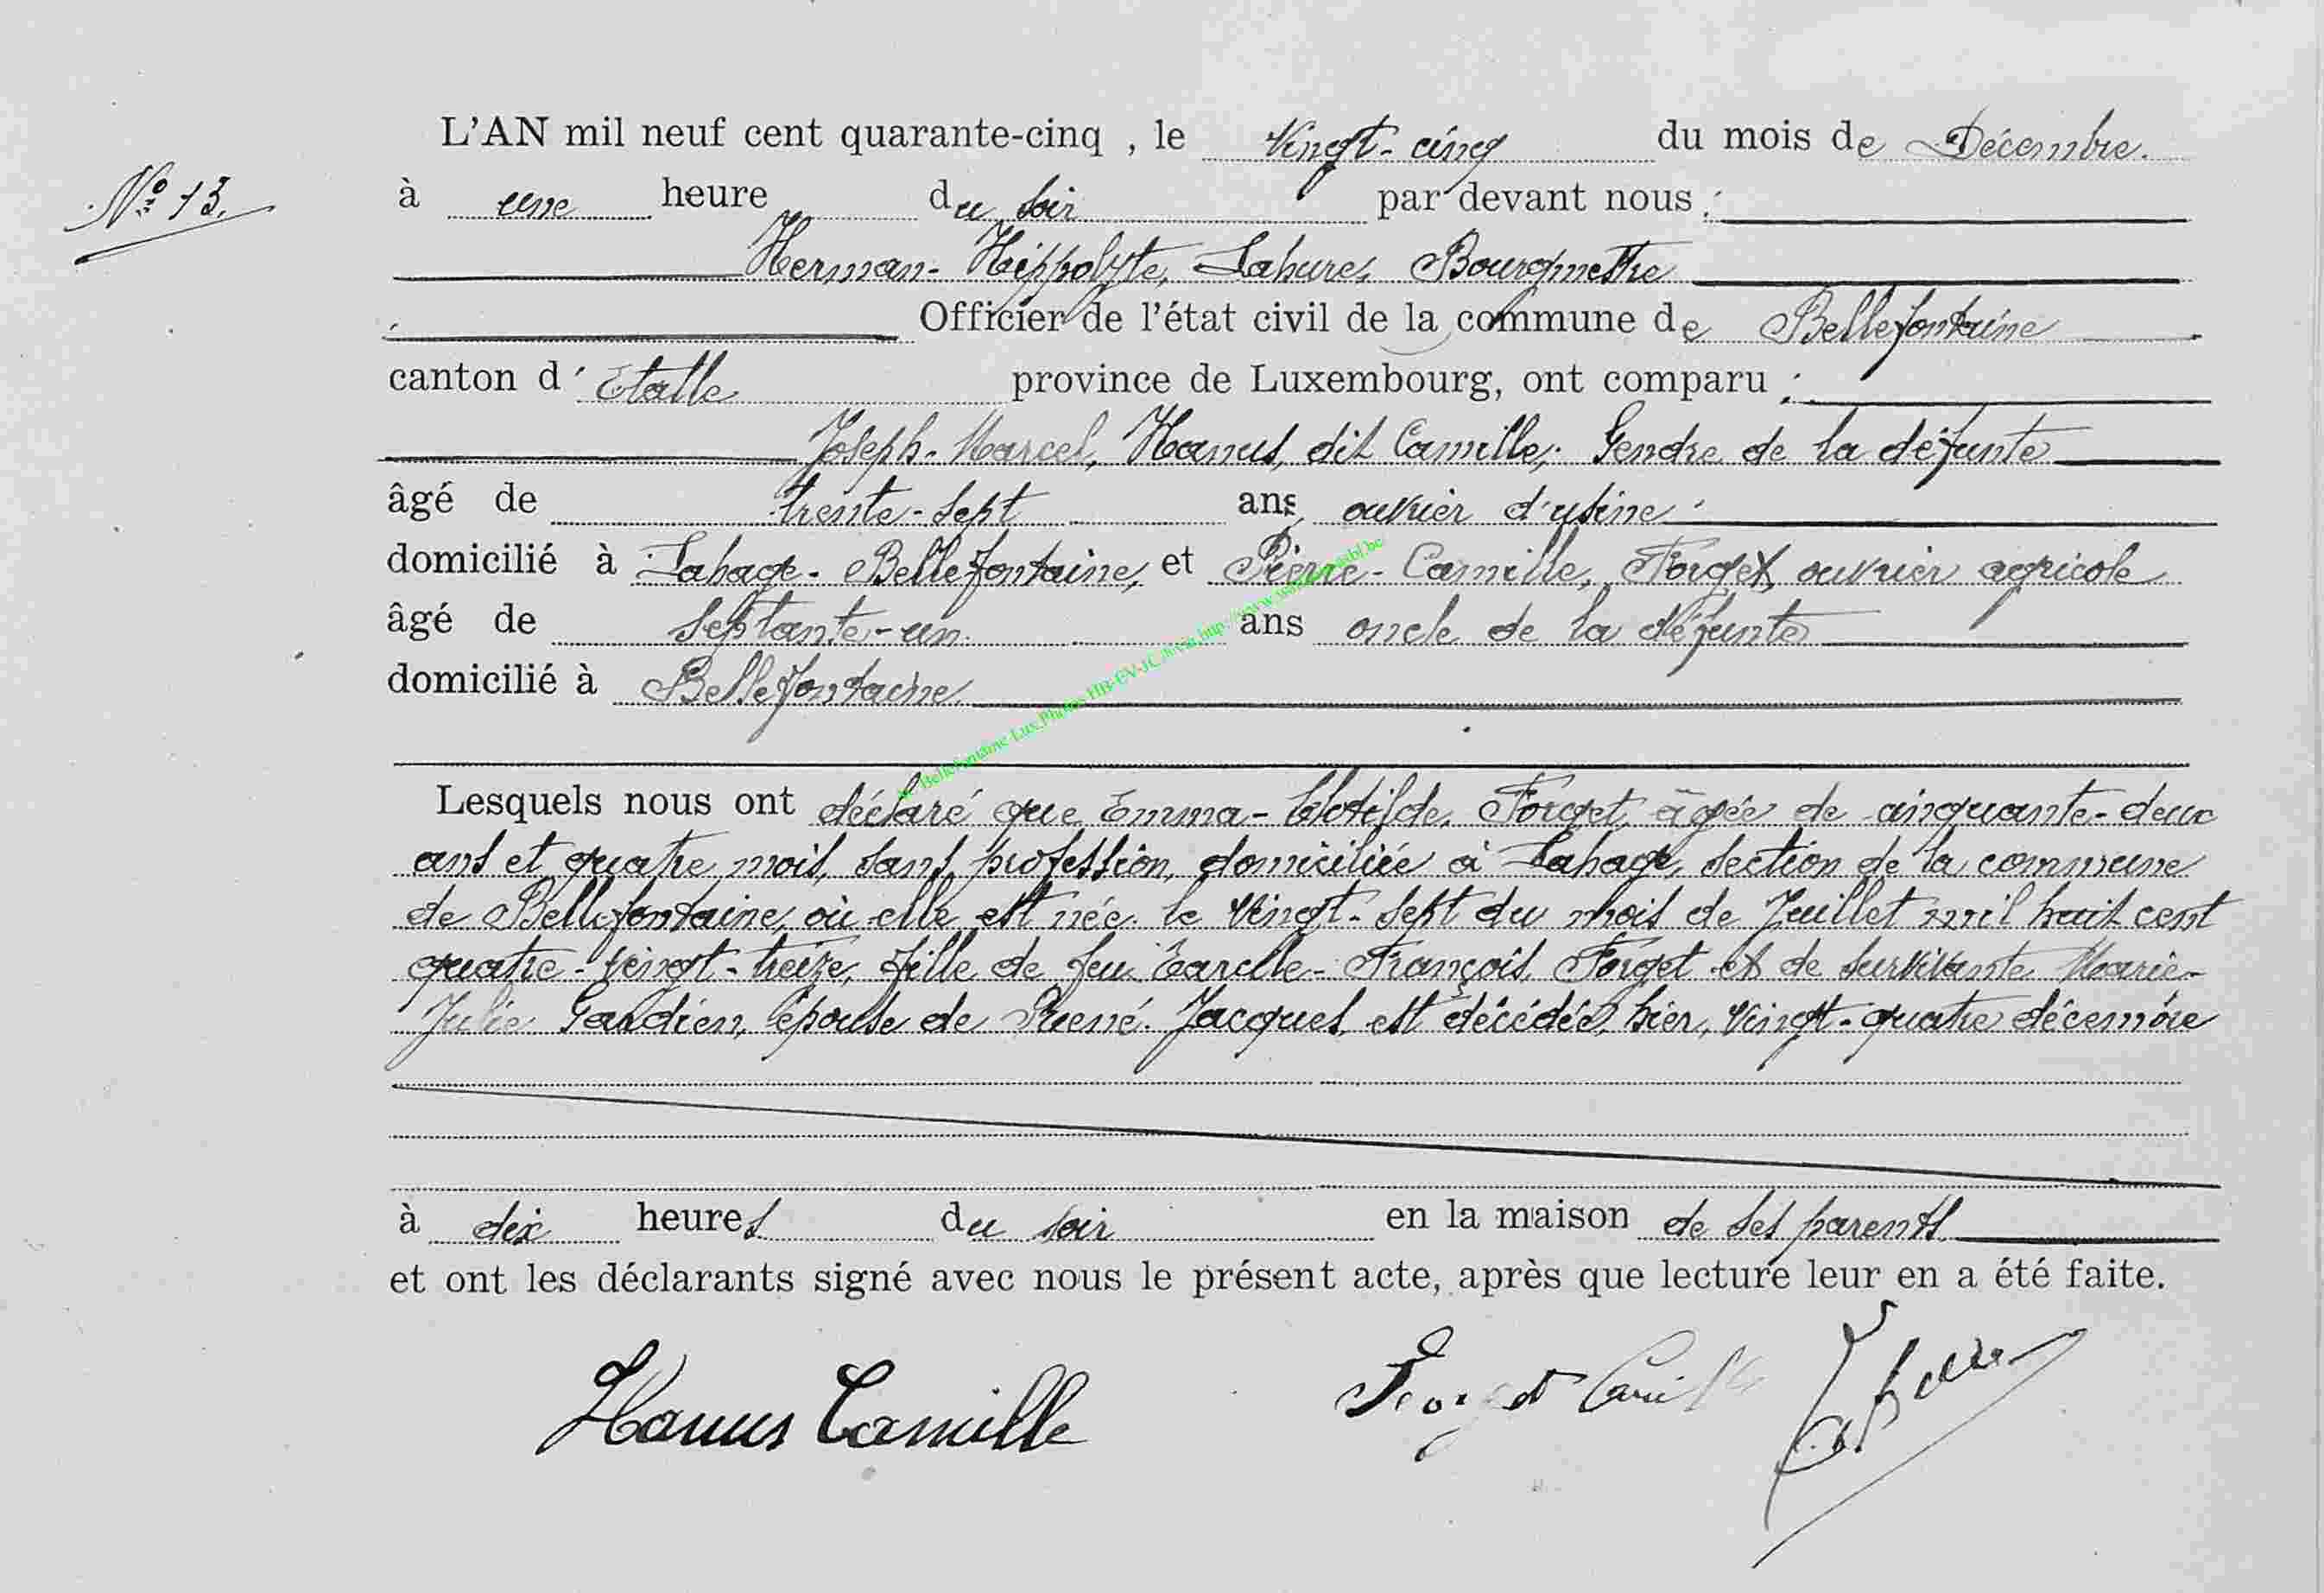 L'AN mil neuf cent quarante-cinq , le Vingt-cinq du mois de Décembre.
N° 13.
à une heure du soir par devant nous :
Herman-Hippolyte, Lahure, Bourgmestre
Officier de l'état civil de la commune de Bellefontaine
canton d'Etalle province de Luxembourg, ont comparu :
Joseph-Marcel, Hanus, dit Camille, Gendre de la défunte
âgé de trente-sept ans ouvrier d'usine
domicilié à Lahage-Bellefontaine, et Pierre-Camille, Forget, ouvrier agricole
âgé de septante-un ans oncle de la défunte
domicilié à Bellefontaine.
Lesquels nous ont déclaré que Emma-Clotilde, Forget, âgée de cinquante-deux
ans et quatre mois, sans profession, domiciliée à Lahage, section de la commune
de Bellefontaine, où elle est née le Vingt-sept du mois de Juillet mil huit cent
quatre-vingt-treize, fille de feu François, Forget et de survivante Marie-
Julie épouse de René Jacques, est décédée, hier, Vingt-quatre décembre
à dix heures du soir en la maison de ses parents.
et ont les déclarants signé avec nous le présent acte, après que lecture leur en a été faite.
Hanus Camille Forget Camille